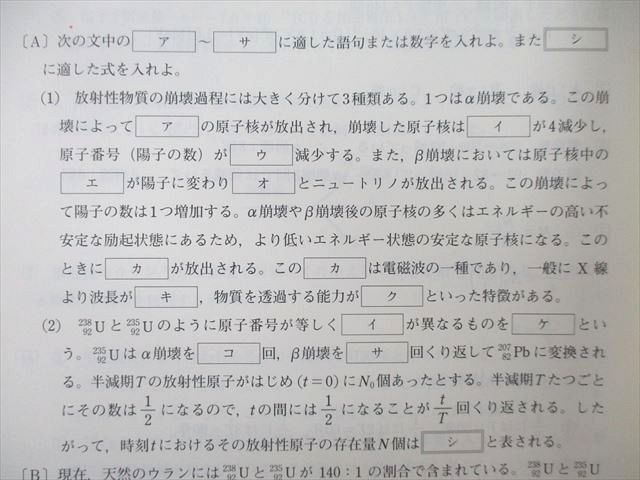 〔A〕次の文中の ア ～ サ に適した語句または数字を入れよ。また シ
に適した式を入れよ。
(1) 放射性物質の崩壊過程には大きく分けて3種類ある。1つはα崩壊である。この崩
壊によって ア の原子核が放出され，崩壊した原子核は イ が4減少し，
原子番号（陽子の数）が ウ 減少する。また，β崩壊においては原子核中の
エ が陽子に変わり オ とニュートリノが放出される。この崩壊によっ
て陽子の数は1つ増加する。α崩壊やβ崩壊後の原子核の多くはエネルギーの高い不
安定な励起状態にあるため，より低いエネルギー状態の安定な原子核になる。この
ときに カ が放出される。この カ は電磁波の一種であり，一般にX線
より波長が キ ，物質を透過する能力が ク といった特徴がある。
(2) ²³⁸₉₂Uと²³⁵₉₂Uのように原子番号が等しく イ が異なるものを ケ とい
う。²³⁵₉₂Uはα崩壊を コ 回，β崩壊を サ 回くり返して²⁰⁷₈₂Pbに変換され
る。半減期Tの放射性原子がはじめ(t=0)にN₀個あったとする。半減期Tたつごと
にその数は1/2になるので，tの間には1/2になることがt/T回くり返される。した
がって，時刻tにおけるその放射性原子の存在量N個は シ と表される。
〔B〕現在，天然のウランには²³⁸₉₂Uと²³⁵₉₂Uが140：1の割合で含まれている。²³⁸₉₂Uと²³⁵₉₂U